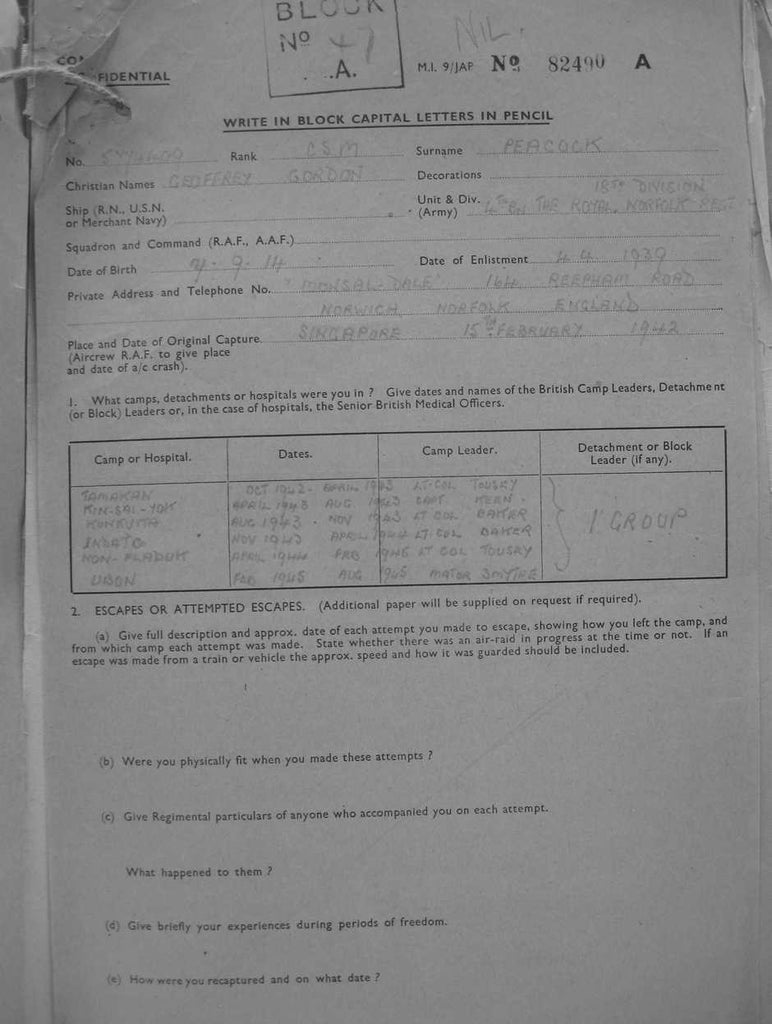 BLOCK
Nº 47
A.
NIL.
CONFIDENTIAL
M.I. 9/JAP Nº 82490 A
WRITE IN BLOCK CAPITAL LETTERS IN PENCIL
No. Rank CSM Surname PEACOCK
Christian Names GEOFFREY GORDON Decorations
Ship (R.N., U.S.N. or Merchant Navy) Unit & Div. (Army) 18TH DIVISION
4TH BN THE ROYAL NORFOLK REGT
Squadron and Command (R.A.F., A.A.F.)
Date of Birth 4-9-14 Date of Enlistment 4.4.1939
Private Address and Telephone No. "MONSAL DALE" 164 REEPHAM ROAD
NORWICH NORFOLK ENGLAND
Place and Date of Original Capture SINGAPORE 15TH FEBRUARY 1942
(Aircrew R.A.F. to give place
and date of a/c crash).
1. What camps, detachments or hospitals were you in ? Give dates and names of the British Camp Leaders, Detachment
(or Block) Leaders or, in the case of hospitals, the Senior British Medical Officers.
Camp or Hospital. Dates. Camp Leader. Detachment or Block Leader (if any).
TAMAKAN OCT 1942 - APRIL 1943 LT. COL TOUSKY
KIN-SAI-YOK APRIL 1943 AUG 1943 CAPT KERN.
KONKUITA AUG 1943 - NOV 1943 LT COL BAKER
NOV 1943 APRIL 1944 LT. COL BAKER
NON-PLADUK APRIL 1944 FEB 1945 LT COL TOUSKY
UBON FEB 1945 AUG 1945 MAJOR SMYTHE
1 GROUP
2. ESCAPES OR ATTEMPTED ESCAPES. (Additional paper will be supplied on request if required).
(a) Give full description and approx. date of each attempt you made to escape, showing how you left the camp, and
from which camp each attempt was made. State whether there was an air-raid in progress at the time or not. If an
escape was made from a train or vehicle the approx. speed and how it was guarded should be included.
(b) Were you physically fit when you made these attempts ?
(c) Give Regimental particulars of anyone who accompanied you on each attempt.
What happened to them ?
(d) Give briefly your experiences during periods of freedom.
(e) How were you recaptured and on what date ?